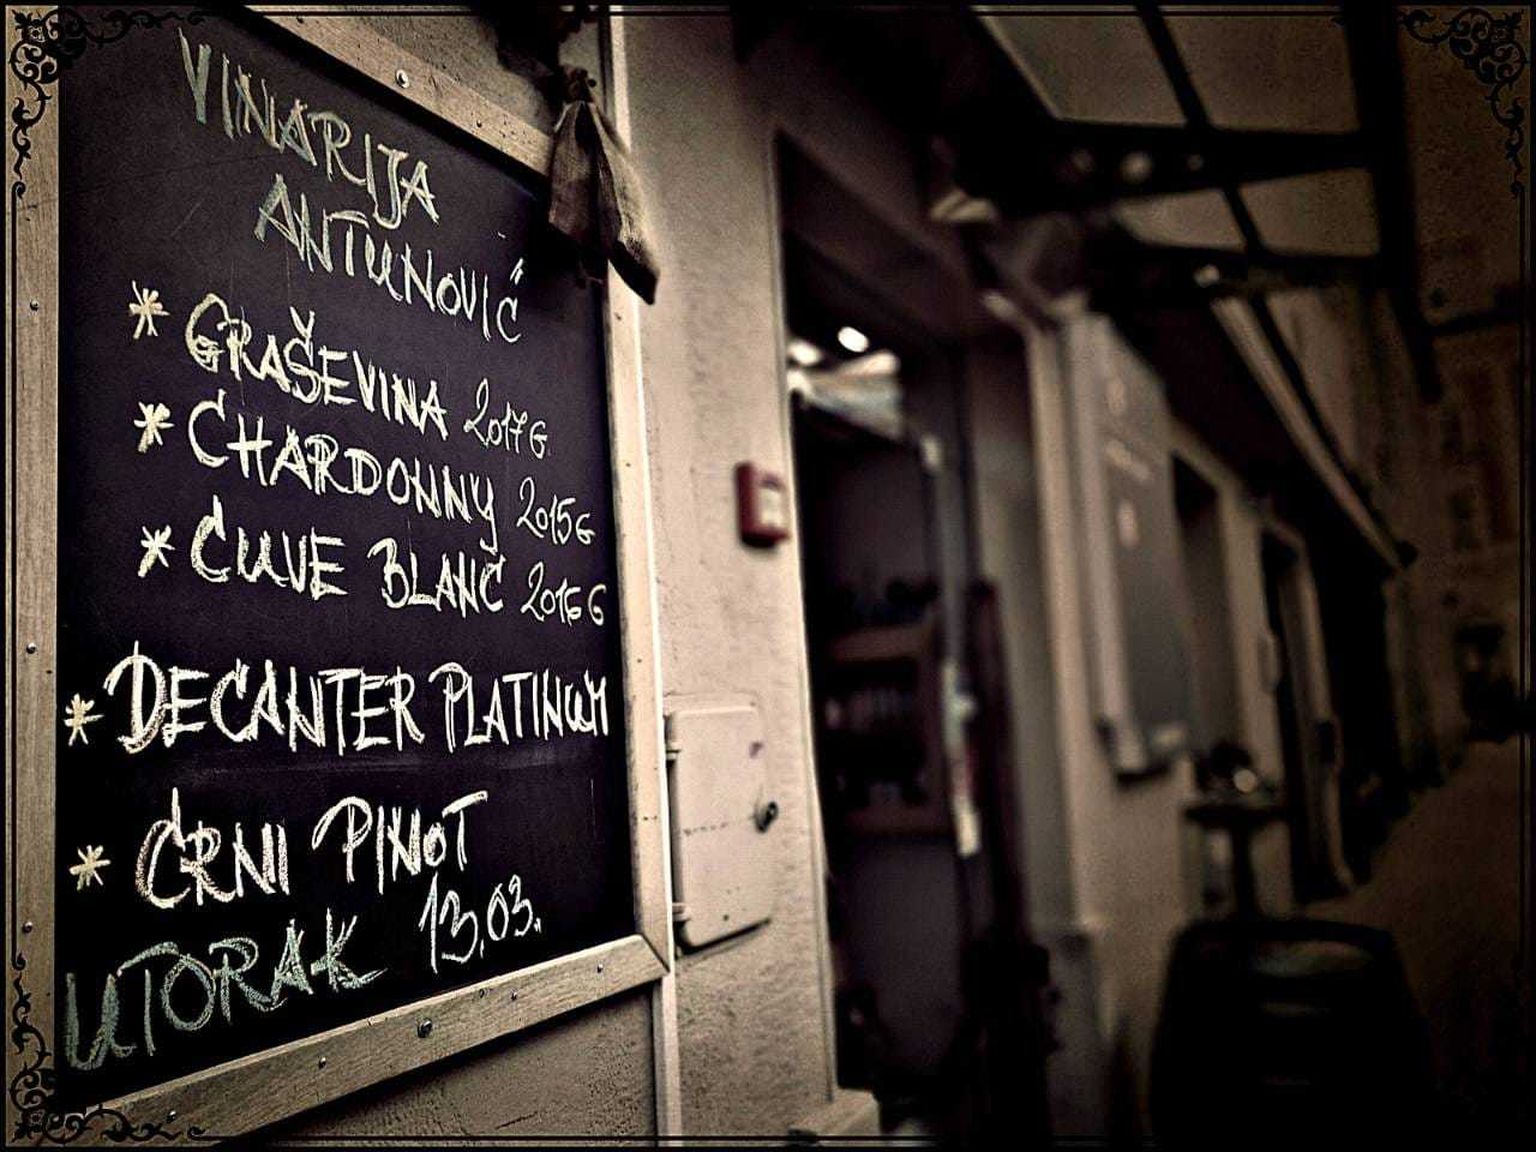 VINARIJA
ANTUNOVIĆ
* GRAŠEVINA 2017 G
* CHARDONNY 2015 G
* CUVE BLANC 2016 G
* DECANTER PLATINUM
* CRNI PINOT
UTORAK 13.03.